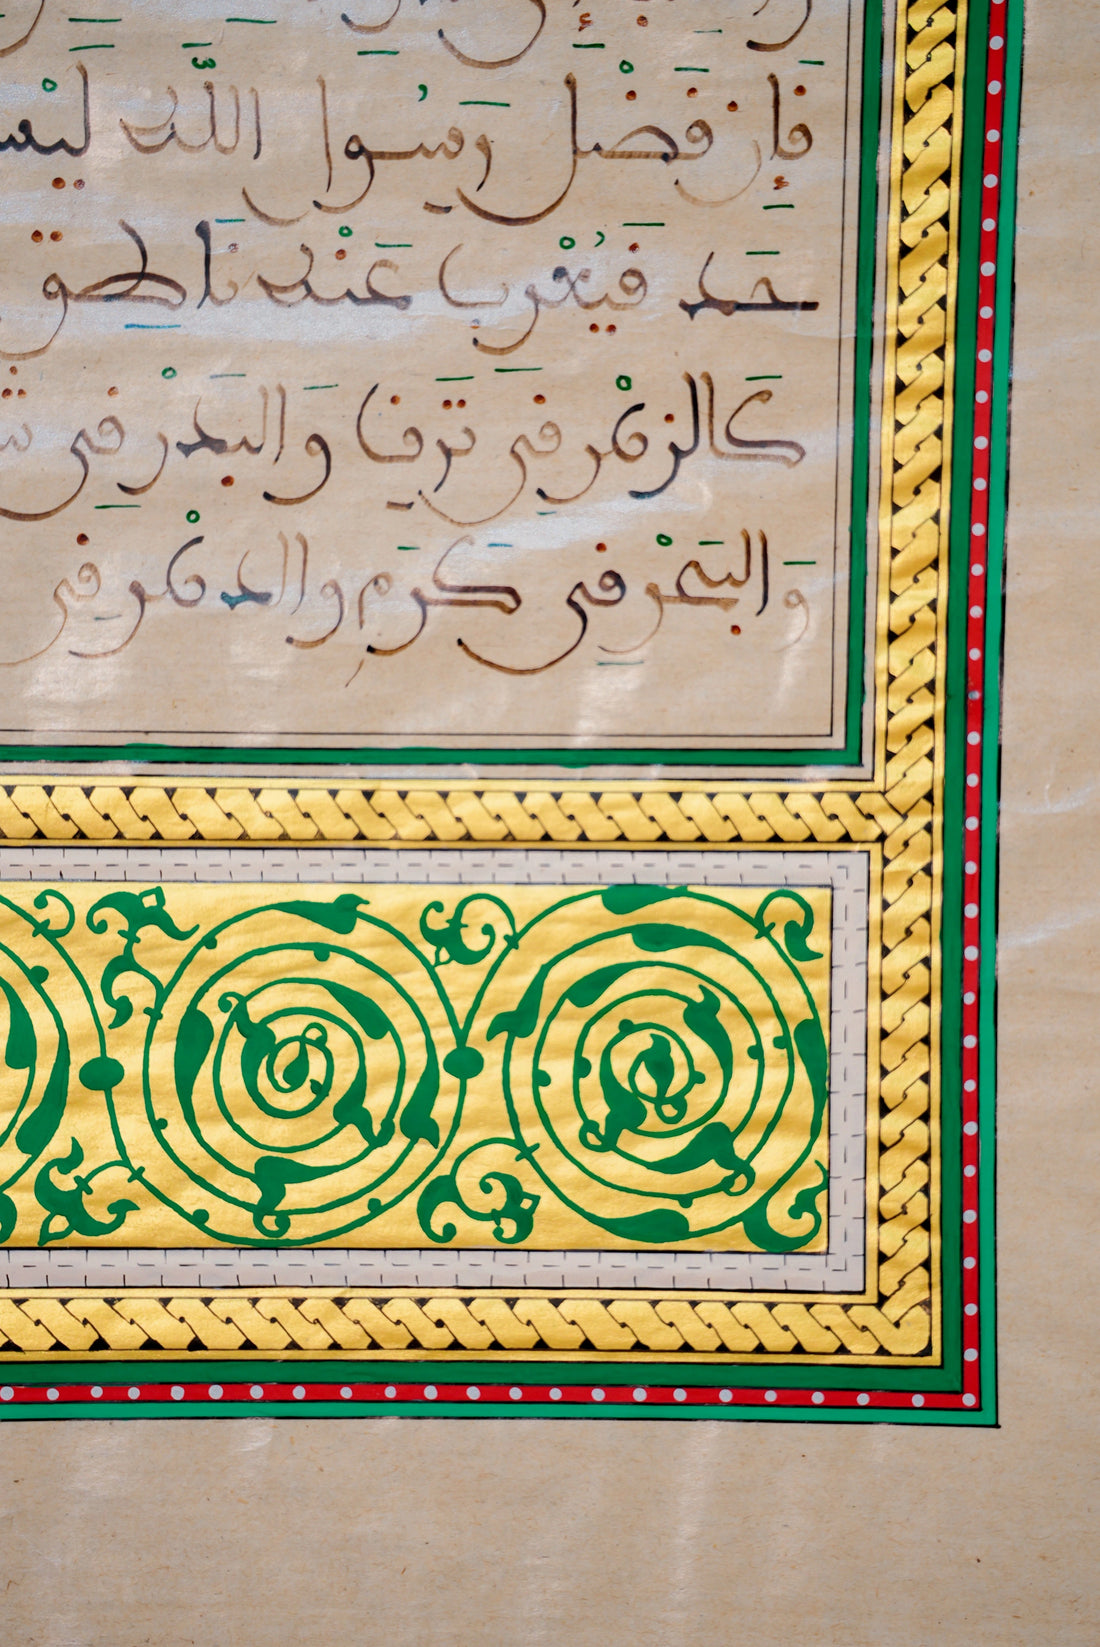 فَإِن فَضْلَ رَسُول اللَّه لَيْس
حَد فَيُعْرِب عَنْه نَاطِق
كَالزهْرِ فِي تَرَف وَالبَدْرِ فِي
وَالبَحْرِ فِي كَرَمٍ وَالدهْرِ فِي